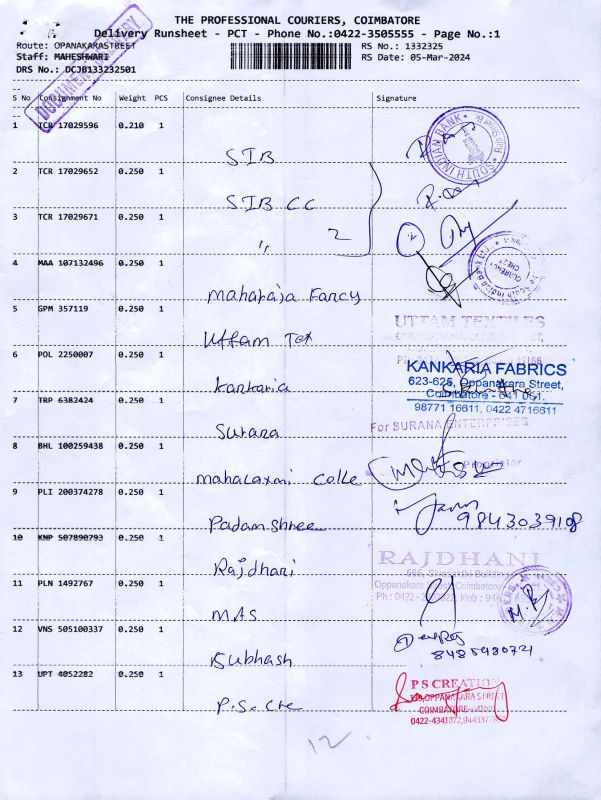 THE PROFESSIONAL COURIERS, COIMBATORE
Delivery Runsheet - PCT - Phone No.:0422-3505555 - Page No.:1
Route: OPANAKARASTREET
RS No.: 1332325
Staff: MAHESHWARI
RS Date: 05-Mar-2024
DRS No.: DCJB133232501
S No Consignment No Weight PCS Consignee Details Signature
1 TCR 17029596 0.210 1
SIB
SOUTH INDIAN BANK
2 TCR 17029652 0.250 1
SIB CC
3 TCR 17029671 0.250 1
" 2
2
CURRENCY CHEST
4 MAA 107132496 0.250 1
Maharaja Fancy
5 GPM 357119 0.250 1
UTTAM TEXTILES
Uttam Tex
6 POL 2250007 0.250 1
KANKARIA FABRICS
623-625, Oppanakara Street,
Coimbatore - 641 001.
98771 16611, 0422 4716611
Kankaria
7 TRP 6382424 0.250 1
For SURANA ENTERPRISES
Surana
8 BHL 100259438 0.250 1
Proprietor
Mahalaxmi Colle
9 PLI 200374278 0.250 1
Padamshree
9843039108
10 KNP 507890793 0.250 1
RAJDHANI
Oppanakara Coimbatore
Rajdhani
11 PLN 1492767 0.250 1
MAS
12 VNS 505100337 0.250 1
Subhash
13 UPT 4052282 0.250 1
P.S. Cre
P S CREATION
OPPANAKARA STREET
COIMBATORE
12